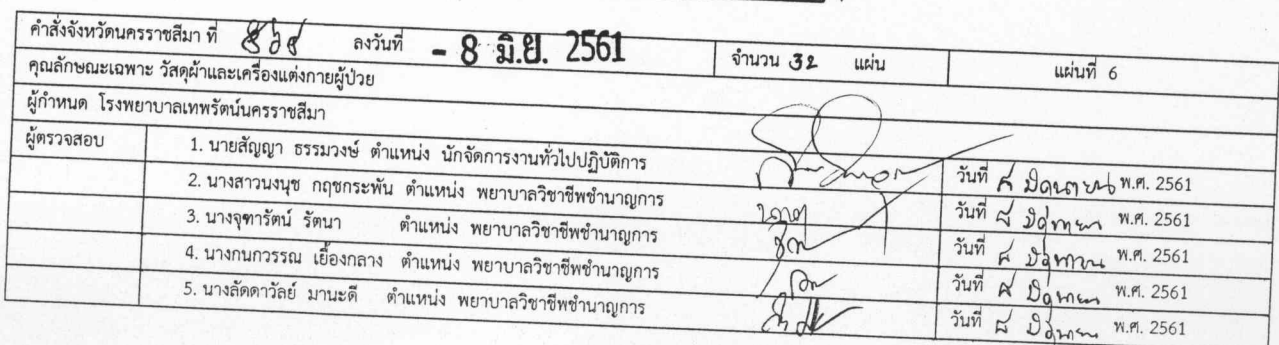 คำสั่งจังหวัดนครราชสีมา ที่ ลงวันที่ - 8 มิ.ย. 2561 จำนวน 32 แผ่น แผ่นที่ 6
คุณลักษณะเฉพาะ วัสดุผ้าและเครื่องแต่งกายผู้ป่วย
ผู้กำหนด โรงพยาบาลเทพรัตน์นครราชสีมา
ผู้ตรวจสอบ 1. นายสัญญา ธรรมวงษ์ ตำแหน่ง นักจัดการงานทั่วไปปฏิบัติการ วันที่ ๘ มิถุนายน พ.ศ. 2561
2. นางสาวนงนุช กฤชกระพัน ตำแหน่ง พยาบาลวิชาชีพชำนาญการ วันที่ ๘ มิถุนายน พ.ศ. 2561
3. นางจุฑารัตน์ รัตนา ตำแหน่ง พยาบาลวิชาชีพชำนาญการ วันที่ ๘ มิถุนายน พ.ศ. 2561
4. นางกนกวรรณ เยื้องกลาง ตำแหน่ง พยาบาลวิชาชีพชำนาญการ วันที่ ๘ มิถุนายน พ.ศ. 2561
5. นางลัดดาวัลย์ มานะดี ตำแหน่ง พยาบาลวิชาชีพชำนาญการ วันที่ ๘ มิถุนายน พ.ศ. 2561